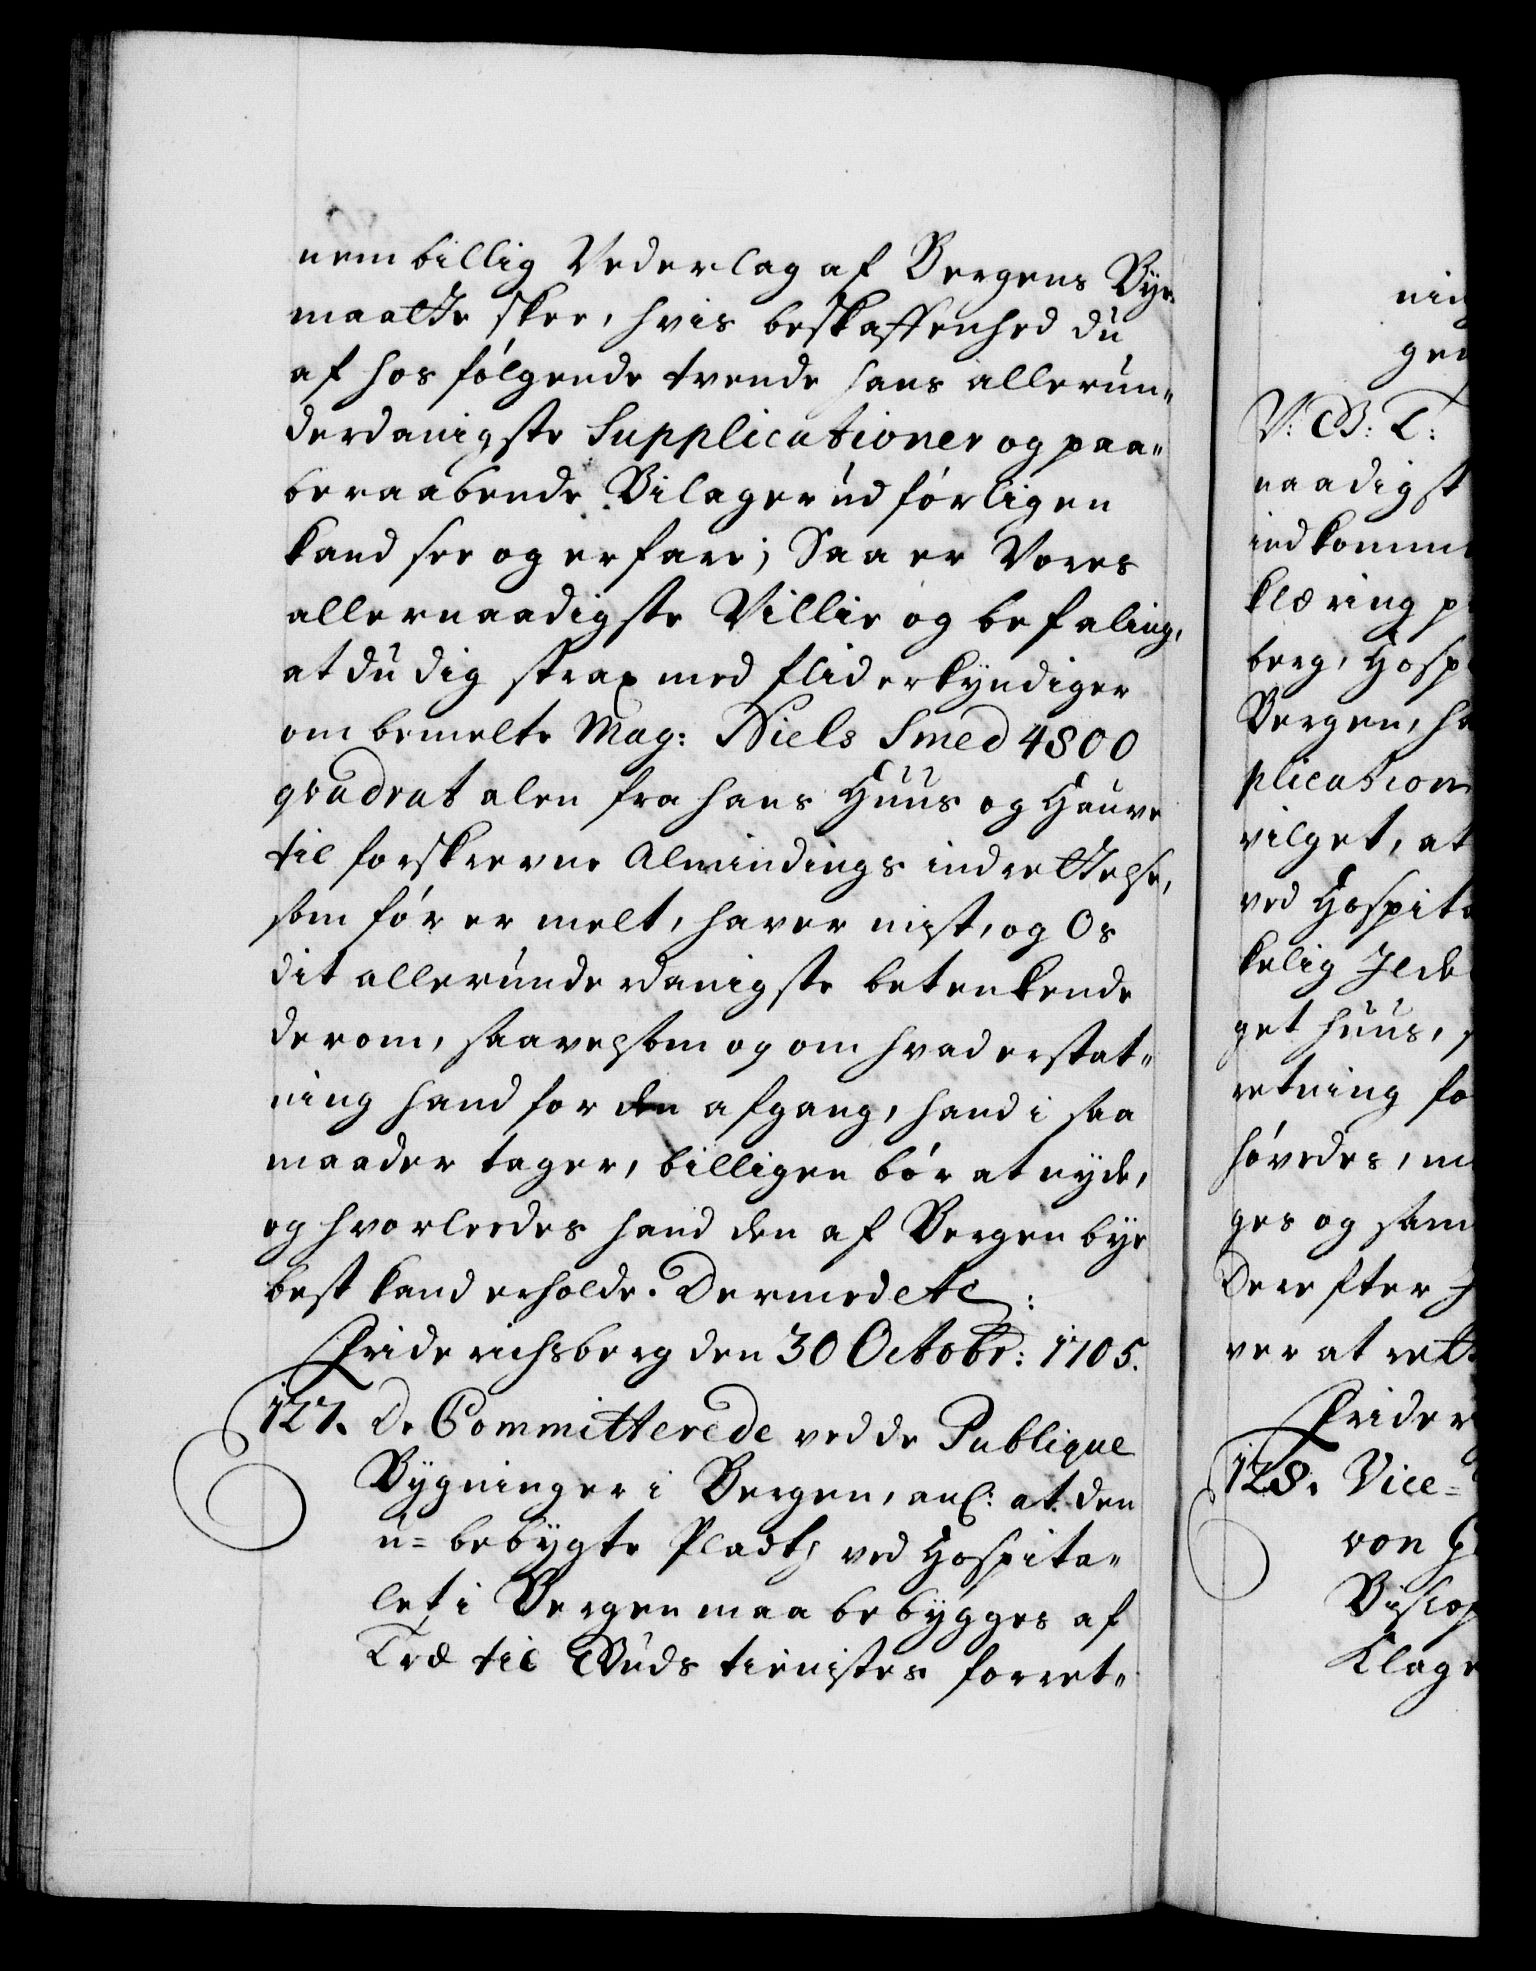 nem billig Vederlag af Bergens Bye
maatte skee, hvis beskaffenhed du
af hos følgende trende hans allerun„
derdanigste Supplicationer og paa„
beraabende Bilager udførligen
kand see og erfare; Saa er Vores
allernaadigste Villie og befaling,
at du dig strax med flid erkyndiger
om bemelte Mag: Niels Smed 4800
qvadrat alen fra hans Huus og Hauve
til forskrevne Almindings indrettelse,
som før er melt, haver mist, og Os
dit allerunderdanigste betenkende
derom, saavelsom og om hvad erstat„
ning hand for den afgang, hand i saa
maader tager, billigen bør at nyde,
og hvorledes hand den af Bergen bye
best kand erholde. Dermed etc:
Friderichsberg den 30 Octobr: 1705.
127. De Committerede ved de Publique
Bygninger i Bergen, anl: at den
u=bebygte Pladtz ved Hospita„
let i Bergen maa bebygges af
Træ til Guds tienistes forret„
nin
gen
V: G: T:
naadigst
indkomm
klæring p
berg, Hosp
Bergen, ha
plication
vilget, at
ved Hospita
kelig Ilde
get huus,
retning fo
høvedes, m
ges og sam
Derefter
ver at rett
Frider
128. Vice=
von
Biscop
Klage